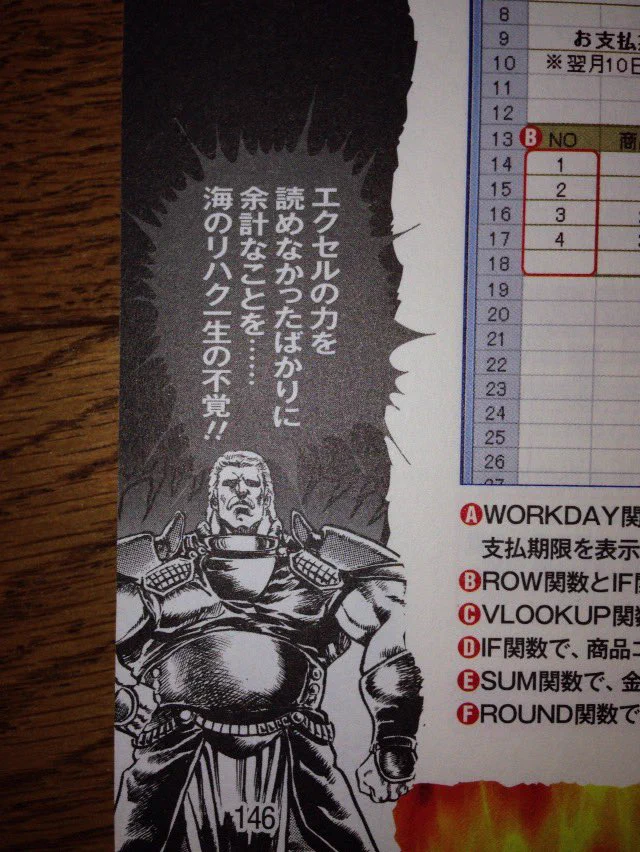 エクセルの力を
読めなかったばかりに
余計なことを……
海のリハク一生の不覚!!
8
9 お支払
10 ※翌月10日
11
12
13 B NO 商
14 1
15 2
16 3
17 4
18
19
20
21
22
23
24
25
26
27
A WORKDAY関
支払期限を表示
B ROW関数とIF
C VLOOKUP関数
D IF関数で、商品コ
E SUM関数で、金
F ROUND関数で
146